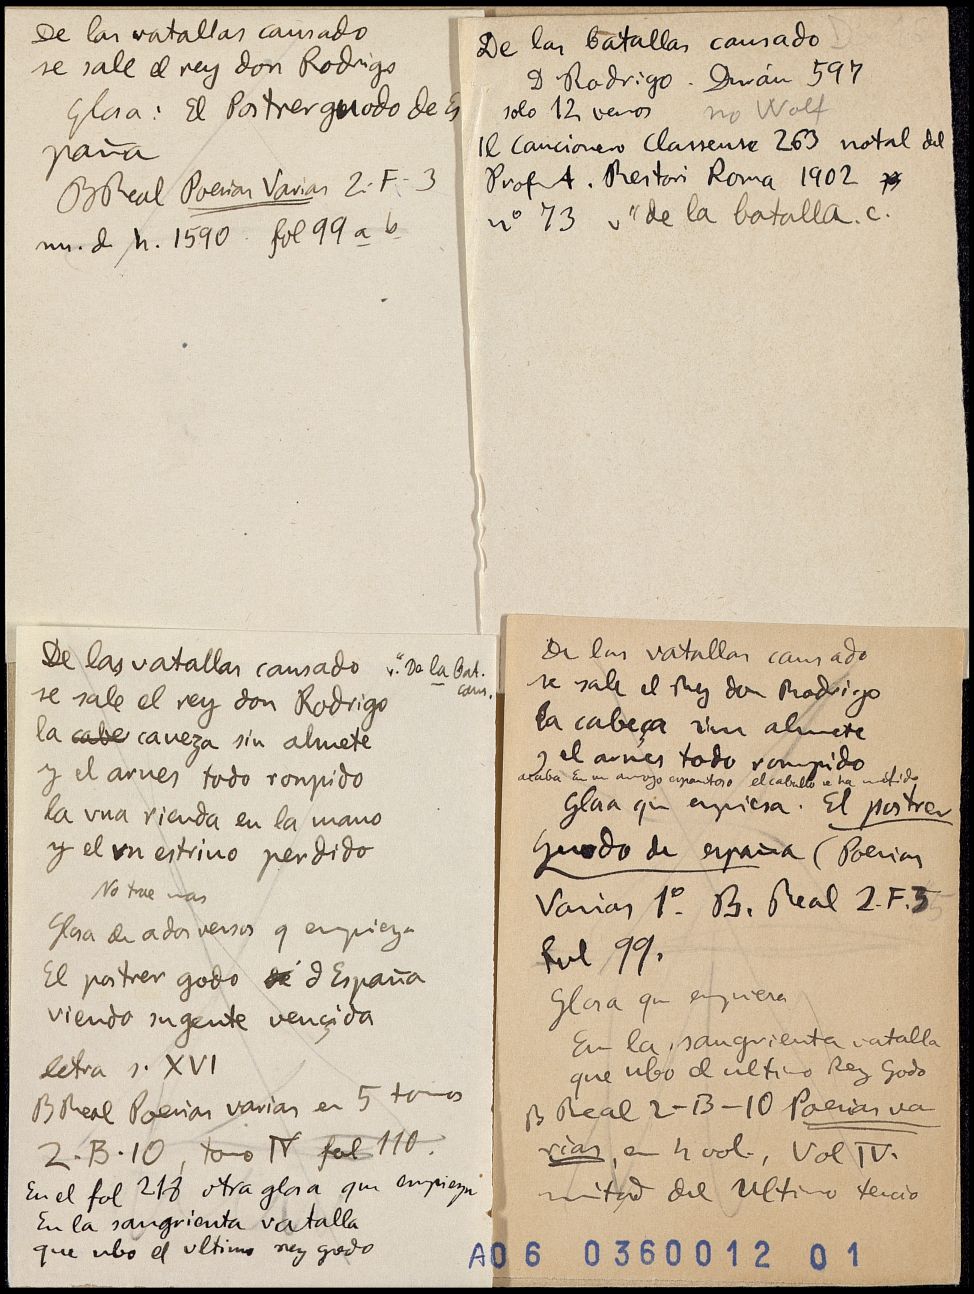 De las vatallas cansado
se sale el rey don Rodrigo
Glosa: El Postrer guodo de Es
paña
B Real Poesias Varias 2-F-3
fol 99 a b
De las batallas cansado
D Rodrigo. Durán 597
solo 12 versos no Wolf
Il cancionero Classense 263 notal del
Prof A. Restori Roma 1902
nº 73 v "de la batalla. c.
De las vatallas cansado v. "De la Bat.
cans.
se sale el rey don Rodrigo
la cabe caveza sin almete
y el arnes todo ronpido
la vna rienda en la mano
y el vn estrivo perdido
No trae mas
Glosa de a dos versos q empieza
El postrer godo de d España
viendo su gente vençida
letra s. XVI
B Real Poesias varias en 5 tomos
2-B-10, tomo IV fol 110.
En el fol 218 otra glosa que empieza
En la sangrienta vatalla
que ubo el ultimo rey godo
De las vatallas cansado
se sale el Rey don Rodrigo
la cabeça sin almete
y el arnes todo rompido
acaba En un arroyo espantoso el caballo se ha metido
Glosa que empiesa. El postrer
Guodo de españa (Poesias
Varias 1º. B. Real 2.F.3
fol 99.
Glosa que empiesa
En la sangrienta vatalla
que ubo el ultimo Rey Godo
B Real 2-B-10 Poesias va
rias, en 4 vol., Vol IV.
mitad del Ultimo tercio
A06 0360012 01